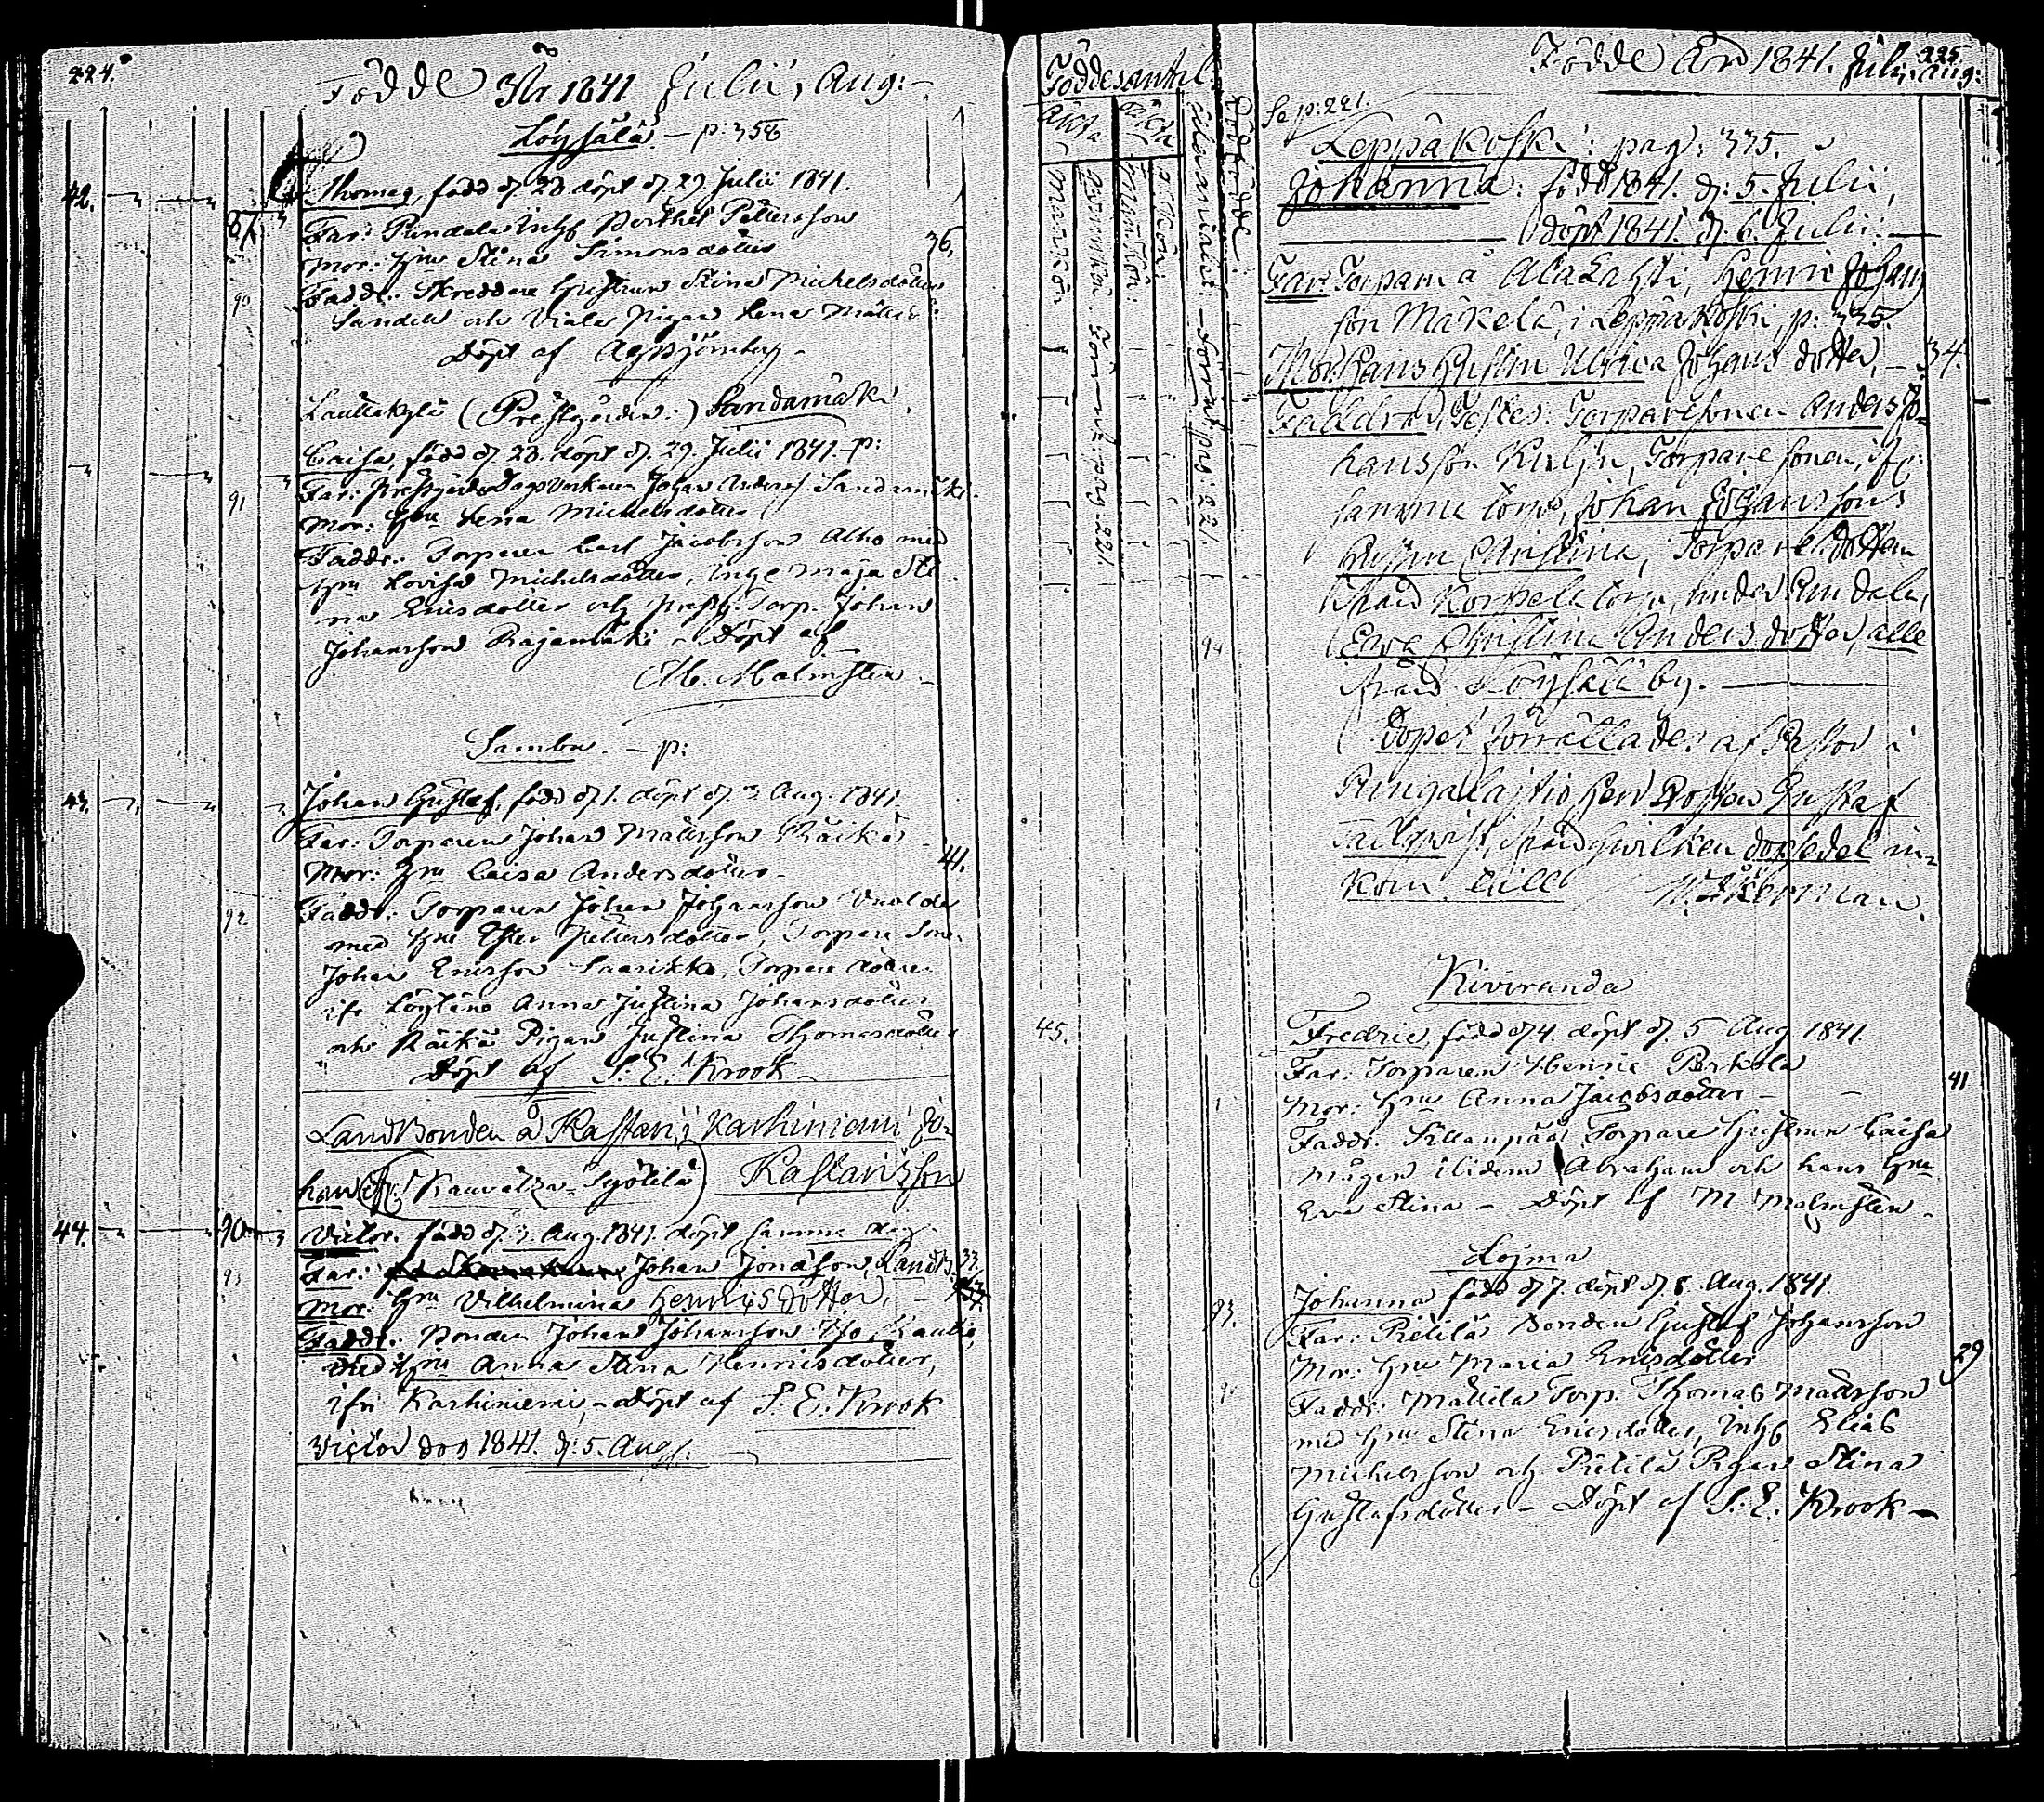 224.
Födde År 1841 Julii, Aug:
Löysälä. – p: 358
42.
Thomas, född d. 28 döpt d. 29 Julii 1841.
87.
Far: Pundala Inhs Berthel Pettersson
36.
Mor: Hu Stina Simonsdotter
90
Faddr: Skreddare Hustrun Stina Michelsdotter
Sandell och Viala Pigan Lena Matts
Döpt af
Lauttakylä (Prestgården.) Sandamäki
Caisa, född d. 28. döpt d. 29. Julii 1841. – p:
91
Far: Dagsverkaren Johan Anders. Sandamäki.
Mor: Hu Lena Michelsdotter
Faddr: Torparen Carl Jacobsson Alho med
Hu Lovisa Michelsdotter, Inhs Maja Sti-
na Ericsdotter och Prestg. Torp. Johan
Johansson Rajamäki – Döpt af
M. Malmsten –
Sambu. – p:
43.
Johan Gustaf, född d. 1. döpt d. 3 Aug. 1841.
Far: Torparen Johan Mattsson Räikä
41.
Mor: Hu Caisa Andersdotter –
92
Faddr: Torparen Johan Johansson
med Hu Ester Pettersdotter, Torpare Sone
Johan Ericsson Saarikko, Torpare dottre
ifr Löytäne Anna Justina Johansdotter
och Räikä Pigan Justina Thomasdotter
Döpt af S. E. Krook –
Landbonden å Kastari, i Karhiniemi Jo-
han (ifr. Kauvatsa Syötilä) Kastarisson
44.
90
Victor. född d. 3. Aug. 1841. döpt samma dag
93
Far: Johan Jonasson, Landtb. 33.
Mor: Hu Vilhelmina Henricsdotter, –
Faddr: Bonden Johan Johansson
med Hu Anna Stina Henricsdotter,
ifr Karhiniemi, – döpt af S. E. Krook
Victor dog 1841. d: 5. Aug.
Föddes antal.
Äkta
Oäkta
Mankön
Qvinnkön
Mankön:
Q:Kön:
Fortsättning: 221.
Dödfödde
pag 221.
225.
Födde År 1841. Julii, Aug:
Se p: 221.
Leppäkoski: pag: 335.
Johanna: född 1841. d: 5. Julii,
döpt 1841. d: 6. Julii. –
Far: Torparn å Alalahti, Henric Johans
son Mäkelä, i Leppäkoski p: 335.
Mor: Hans Hustru Ulrica Johans dotter, – 34.
Faddrar, Testes: Torparesonen Anders Jo-
hansson Kulju, Torpare sonen, ifr:
samma torp, Johan Johanssons
Hustru Christina, Torpare dottern
från Korpela torp, under Pundala,
94
Ewa Christina Anders dotter, alla
från Löysälä by. –
Dopet förrättades af Pastor i
Pungalaitio Herr Prosten Gustaf
Tallqvist, från hvilken dopsedel in-
kom hitt W. Åkerman.
Kiviranda
45.
Fredric, född d. 4. döpt d. 5 Aug 1841.
Far: Torparen Henric Perkola
41
Mor: Hu Anna Jacobsdotter –
Faddr: Sillanpää Torpare Hustrun Caisa
Mågen ibidem Abraham och hans Hu
Eva Stina – Döpt af M Malmsten –
Loima
Johanna född d. 7. döpt d. 8 Aug. 1841.
93.
Far: Pietilä Bonden Gustaf Johansson
Mor: Hu Maria Ericsdotter
29
Faddr: Mattila Torp. Thomas Mattsson
med Hu Stina Ericsdotter, Inhs Elias
Michelsson och Pietilä Pigan Stina
Gustafsdotter – Döpt af S. E. Krook –